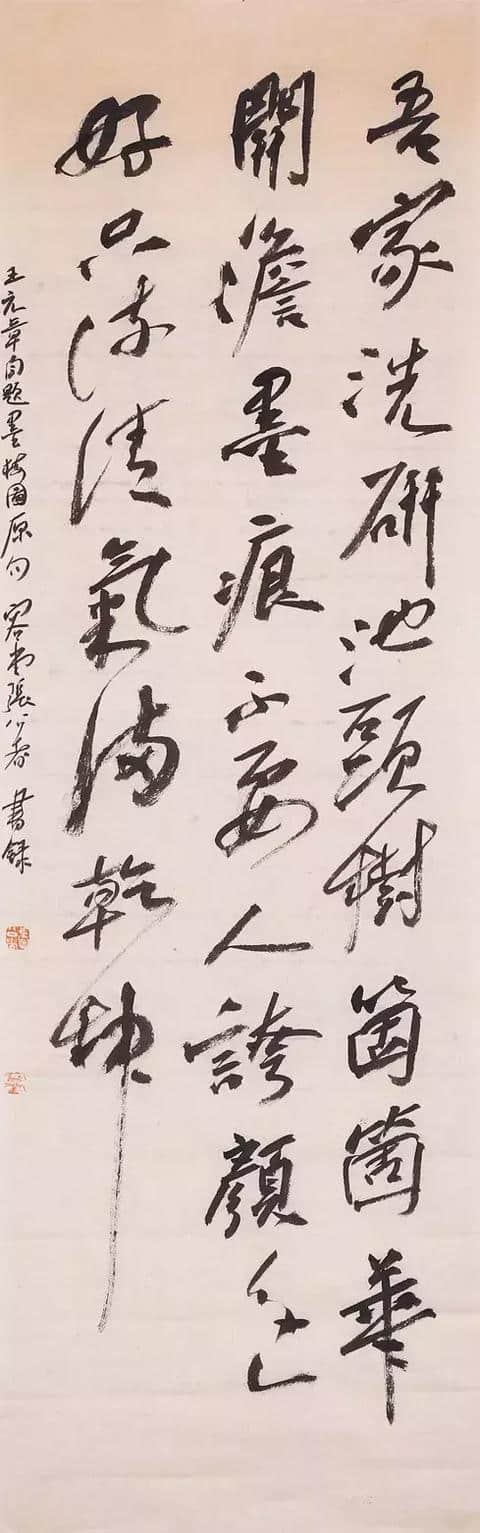 吾家洗研池頭樹箇箇華
開澹墨痕不要人誇顏色
好只流清氣滿乾坤
王元章自題墨梅圖原句 張 書錄